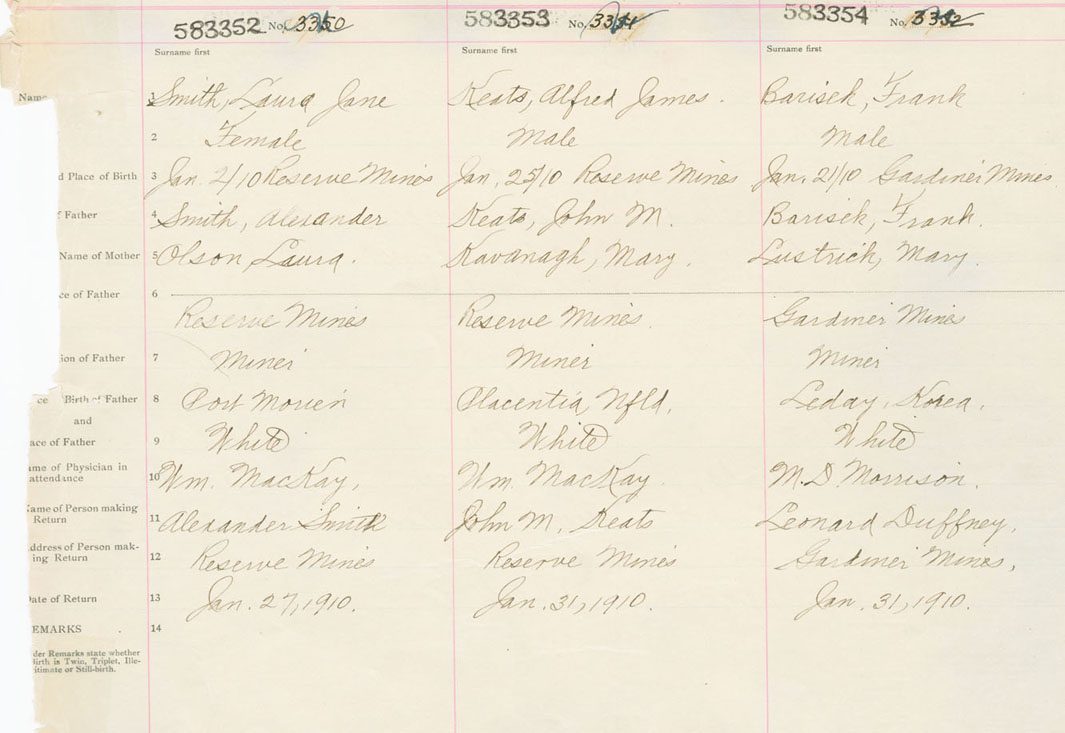 583352 No. 3350 583353 No. 3351 583354 No. 3352
Surname first Surname first Surname first
Name 1 Smith, Laura Jane Keats, Alfred James. Barisek, Frank
2 Female Male Male
d Place of Birth 3 Jan. 2/10 Reserve Mines Jan. 25/10 Reserve Mines Jan. 21/10 Gardiner Mines
f Father 4 Smith, Alexander Keats, John M. Barisek, Frank.
Name of Mother 5 Olson, Laura. Kavanagh, Mary. Lustrich, Mary.
ce of Father 6
Reserve Mines Reserve Mines. Gardiner Mines
ion of Father 7 Miner Miner Miner
ce Birth of Father 8 Port Morien Placentia, Nfld. Leday, Korea.
and
ace of Father 9 White White White
ame of Physician in
attendance 10 Wm. MacKay, Wm. MacKay. M.D. Morrison.
Name of Person making
Return 11 Alexander Smith John M. Keats Leonard Duffney.
ddress of Person mak-
ing Return 12 Reserve Mines Reserve Mines Gardiner Mines,
Date of Return 13 Jan. 27, 1910. Jan. 31, 1910. Jan. 31, 1910.
EMARKS . 14
der Remarks state whether
Birth is Twin, Triplet, Ille-
itimate or Still-birth.